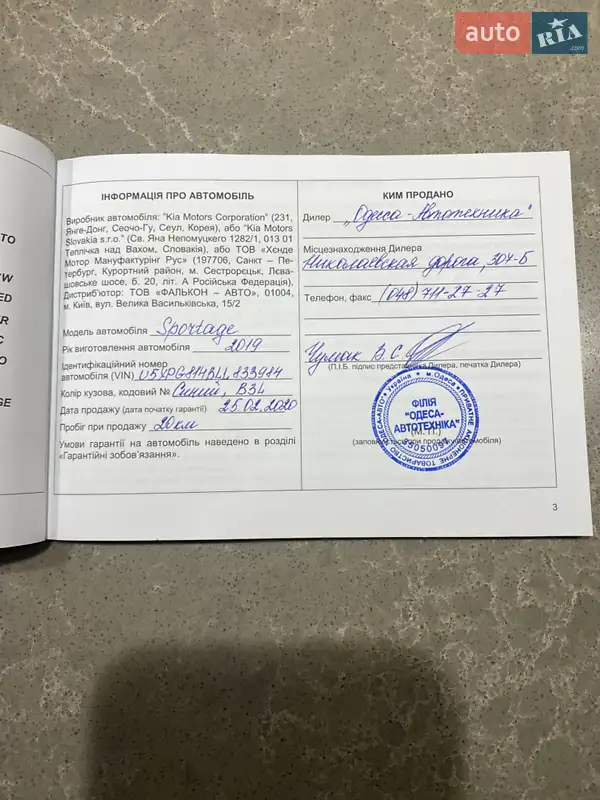 auto RIA .com
TO
EW
ED
R
C
O
GE
ІНФОРМАЦІЯ ПРО АВТОМОБІЛЬ
Виробник автомобіля: "Kia Motors Corporation" (231,
Янге-Донг, Сеочо-Гу, Сеул, Корея), або "Kia Motors
Slovakia s.r.o." (Св. Яна Непомуцкего 1282/1, 013 01
Теплічка над Вахом, Словакія), або ТОВ «Хєнде
Мотор Мануфактурінг Рус» (197706, Санкт – Пе-
тербург, Курортний район, м. Сестрорєцьк, Лєва-
шовське шосе, б. 20, літ. А Російська Федерація),
Дистриб'ютор: ТОВ «ФАЛЬКОН – АВТО», 01004,
м. Київ, вул. Велика Васильківська, 15/2
Модель автомобіля Sportage
Рік виготовлення автомобіля 2019
Ідентифікаційний номер
автомобіля (VIN) U5YPG814BLL833984
Колір кузова, кодовий № Синий, B3L
Дата продажу (дата початку гарантії) 25.02.2020
Пробіг при продажу 20 км
Умови гарантії на автомобіль наведено в розділі
«Гарантійні зобов'язання».
КИМ ПРОДАНО
Дилер „Одеса-Автотехника"
Місцезнаходження Дилера
Николаевская дорога, 304-Б
Телефон, факс (048) 711-27-27
Чумак В.С.
(П.І.Б. підпис представника Дилера, печатка Дилера)
Україна * м.Одеса * ПРИВАТНЕ АКЦІОНЕРНЕ ТОВАРИСТВО "ОДЕСА-АВТО"
ФІЛІЯ
"ОДЕСА-
АВТОТЕХНІКА"
(М.П.)
25050097
3